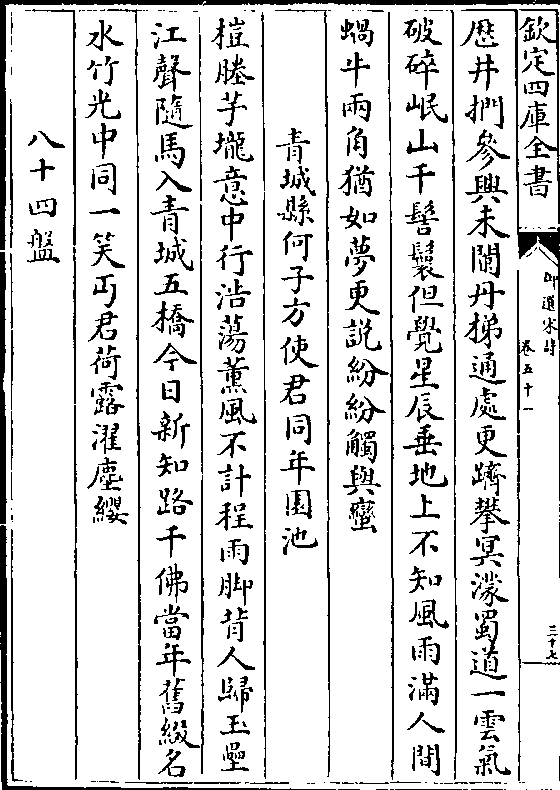 欽定四庫全書
御選宋詩
卷五十一
三十七
歴井捫參興未闌丹梯通處更躋攀冥濛蜀道一雲氣
破碎岷山千髻鬟但覺星辰垂地上不知風雨滿人間
蝸牛兩角猶如夢更說紛紛觸與蠻
青城縣何子方使君同年園池
榿塍芋壠意中行浩蕩薰風不計程雨脚背人歸玉壘
江聲隨馬入青城五橋今日新知路千佛當年舊綴名
水竹光中同一笑丐君荷露濯塵纓
八十四盤